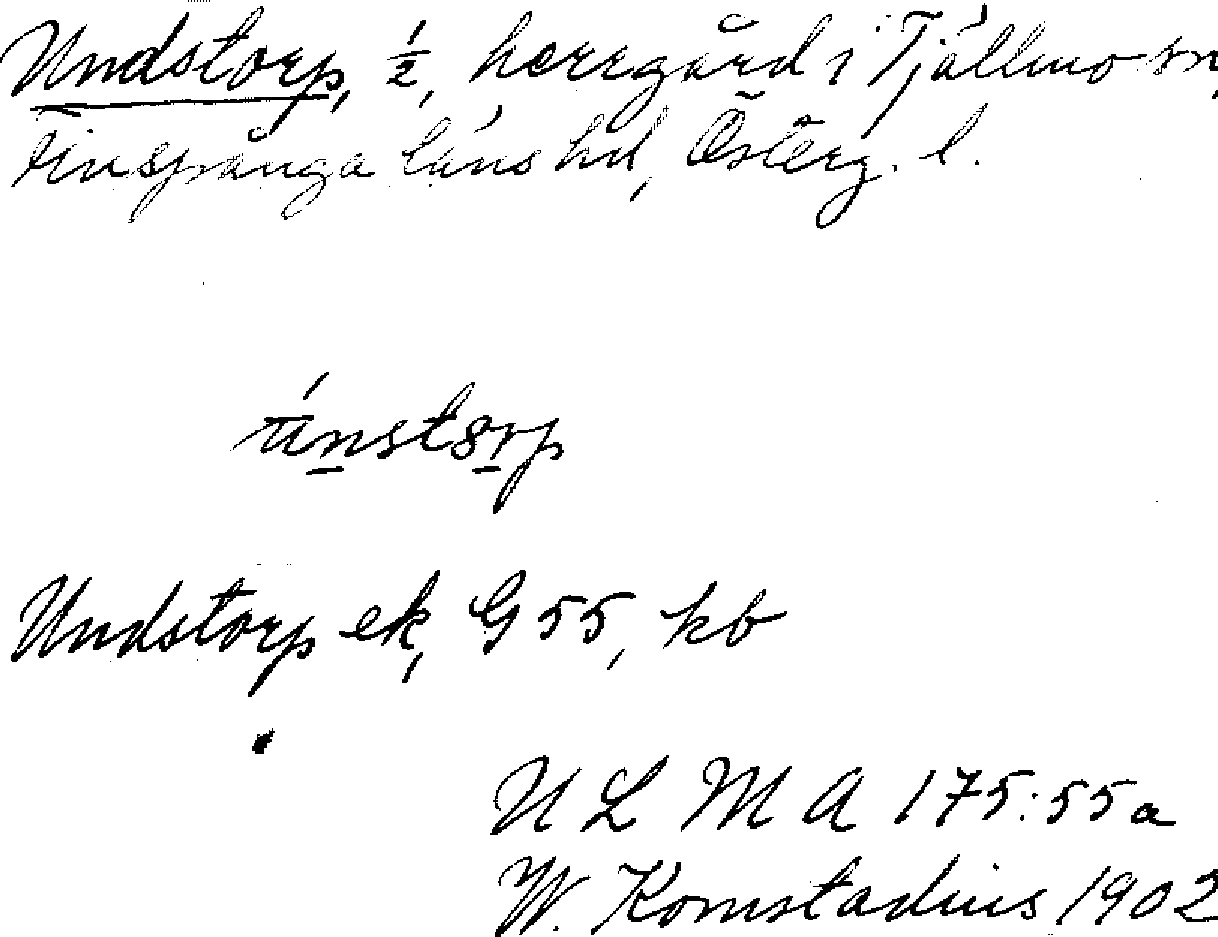 Undstorp, ½, herrgård i Tjällmo sn,
Finspånga läns hd, Österg. l.
Undstorp ek, G 55, kb
U L M A 175:55a
W. Komstadius 1902